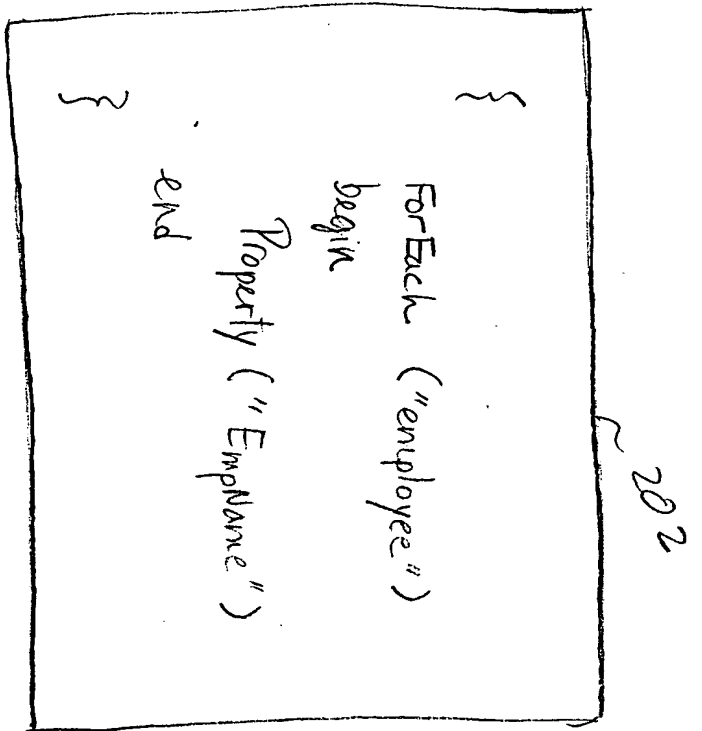 202
{
ForEach ("employee")
begin
Property ("EmpName")
end
}